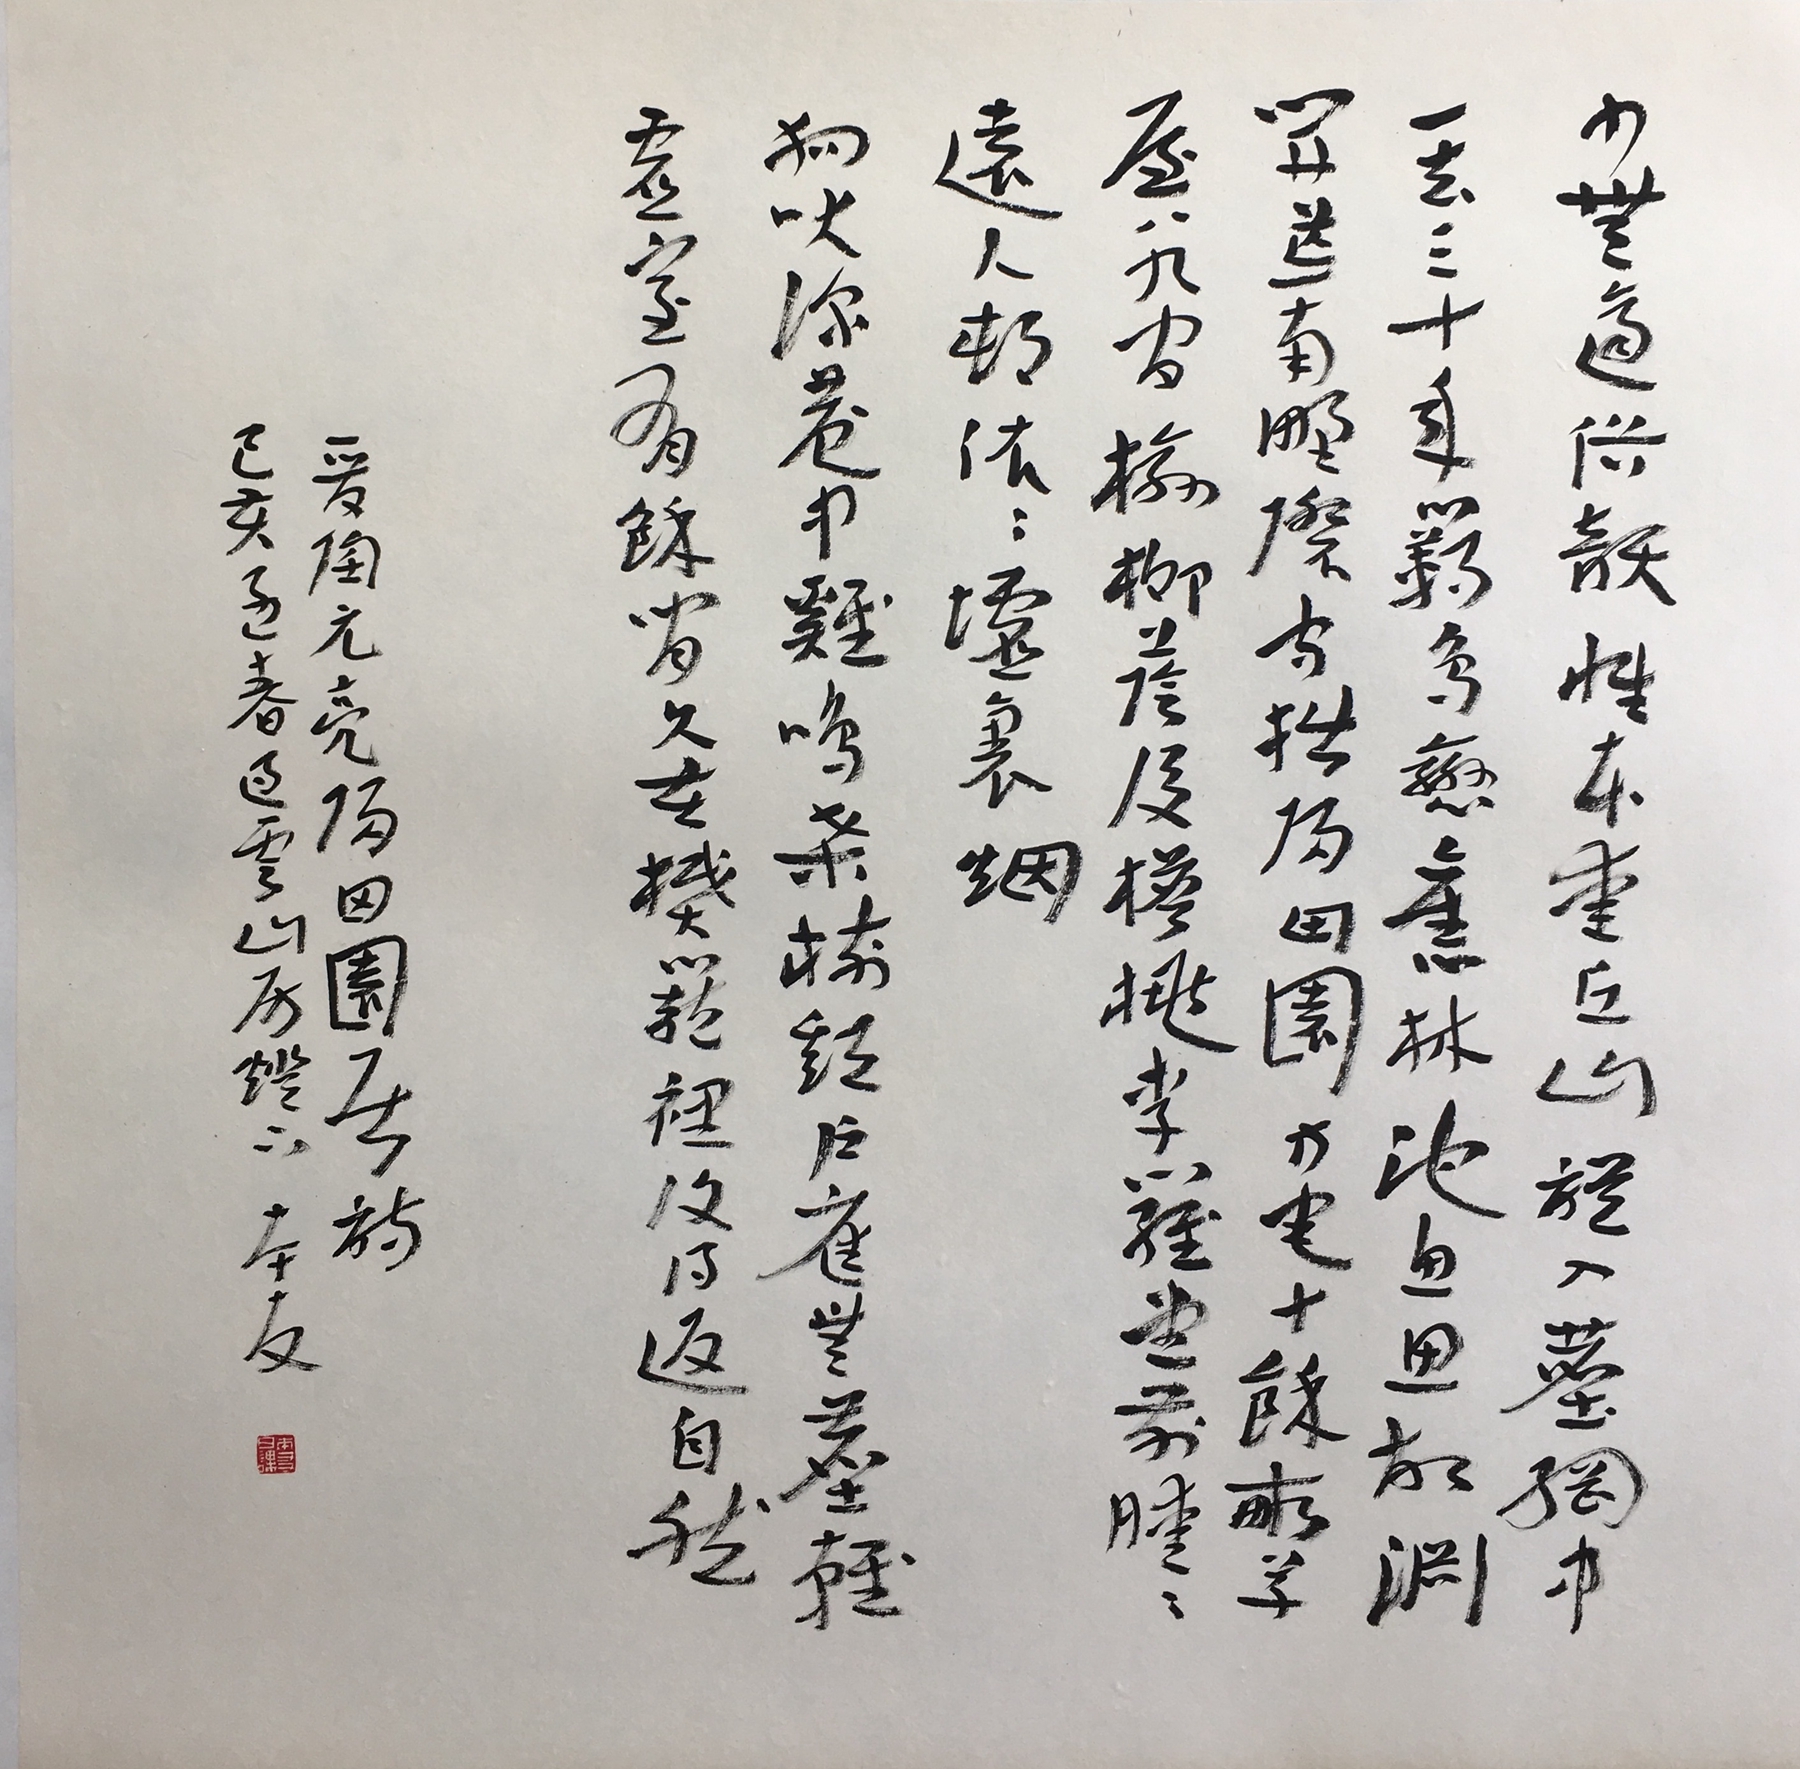 少無適俗韻性本愛丘山誤入塵網中
一去三十年羈鳥戀舊林池魚思故淵
開荒南野際守拙歸田園方宅十餘畝草
屋八九間榆柳蔭後檐桃李羅堂前曖〻
遠人邨依〻墟裏烟
狗吠深巷中雞鳴桑樹顛戶庭無塵雜
虛室有餘閒久在樊籠裡復得返自然
陶元亮歸田園居詩
己亥孟春雲山房燈下本友